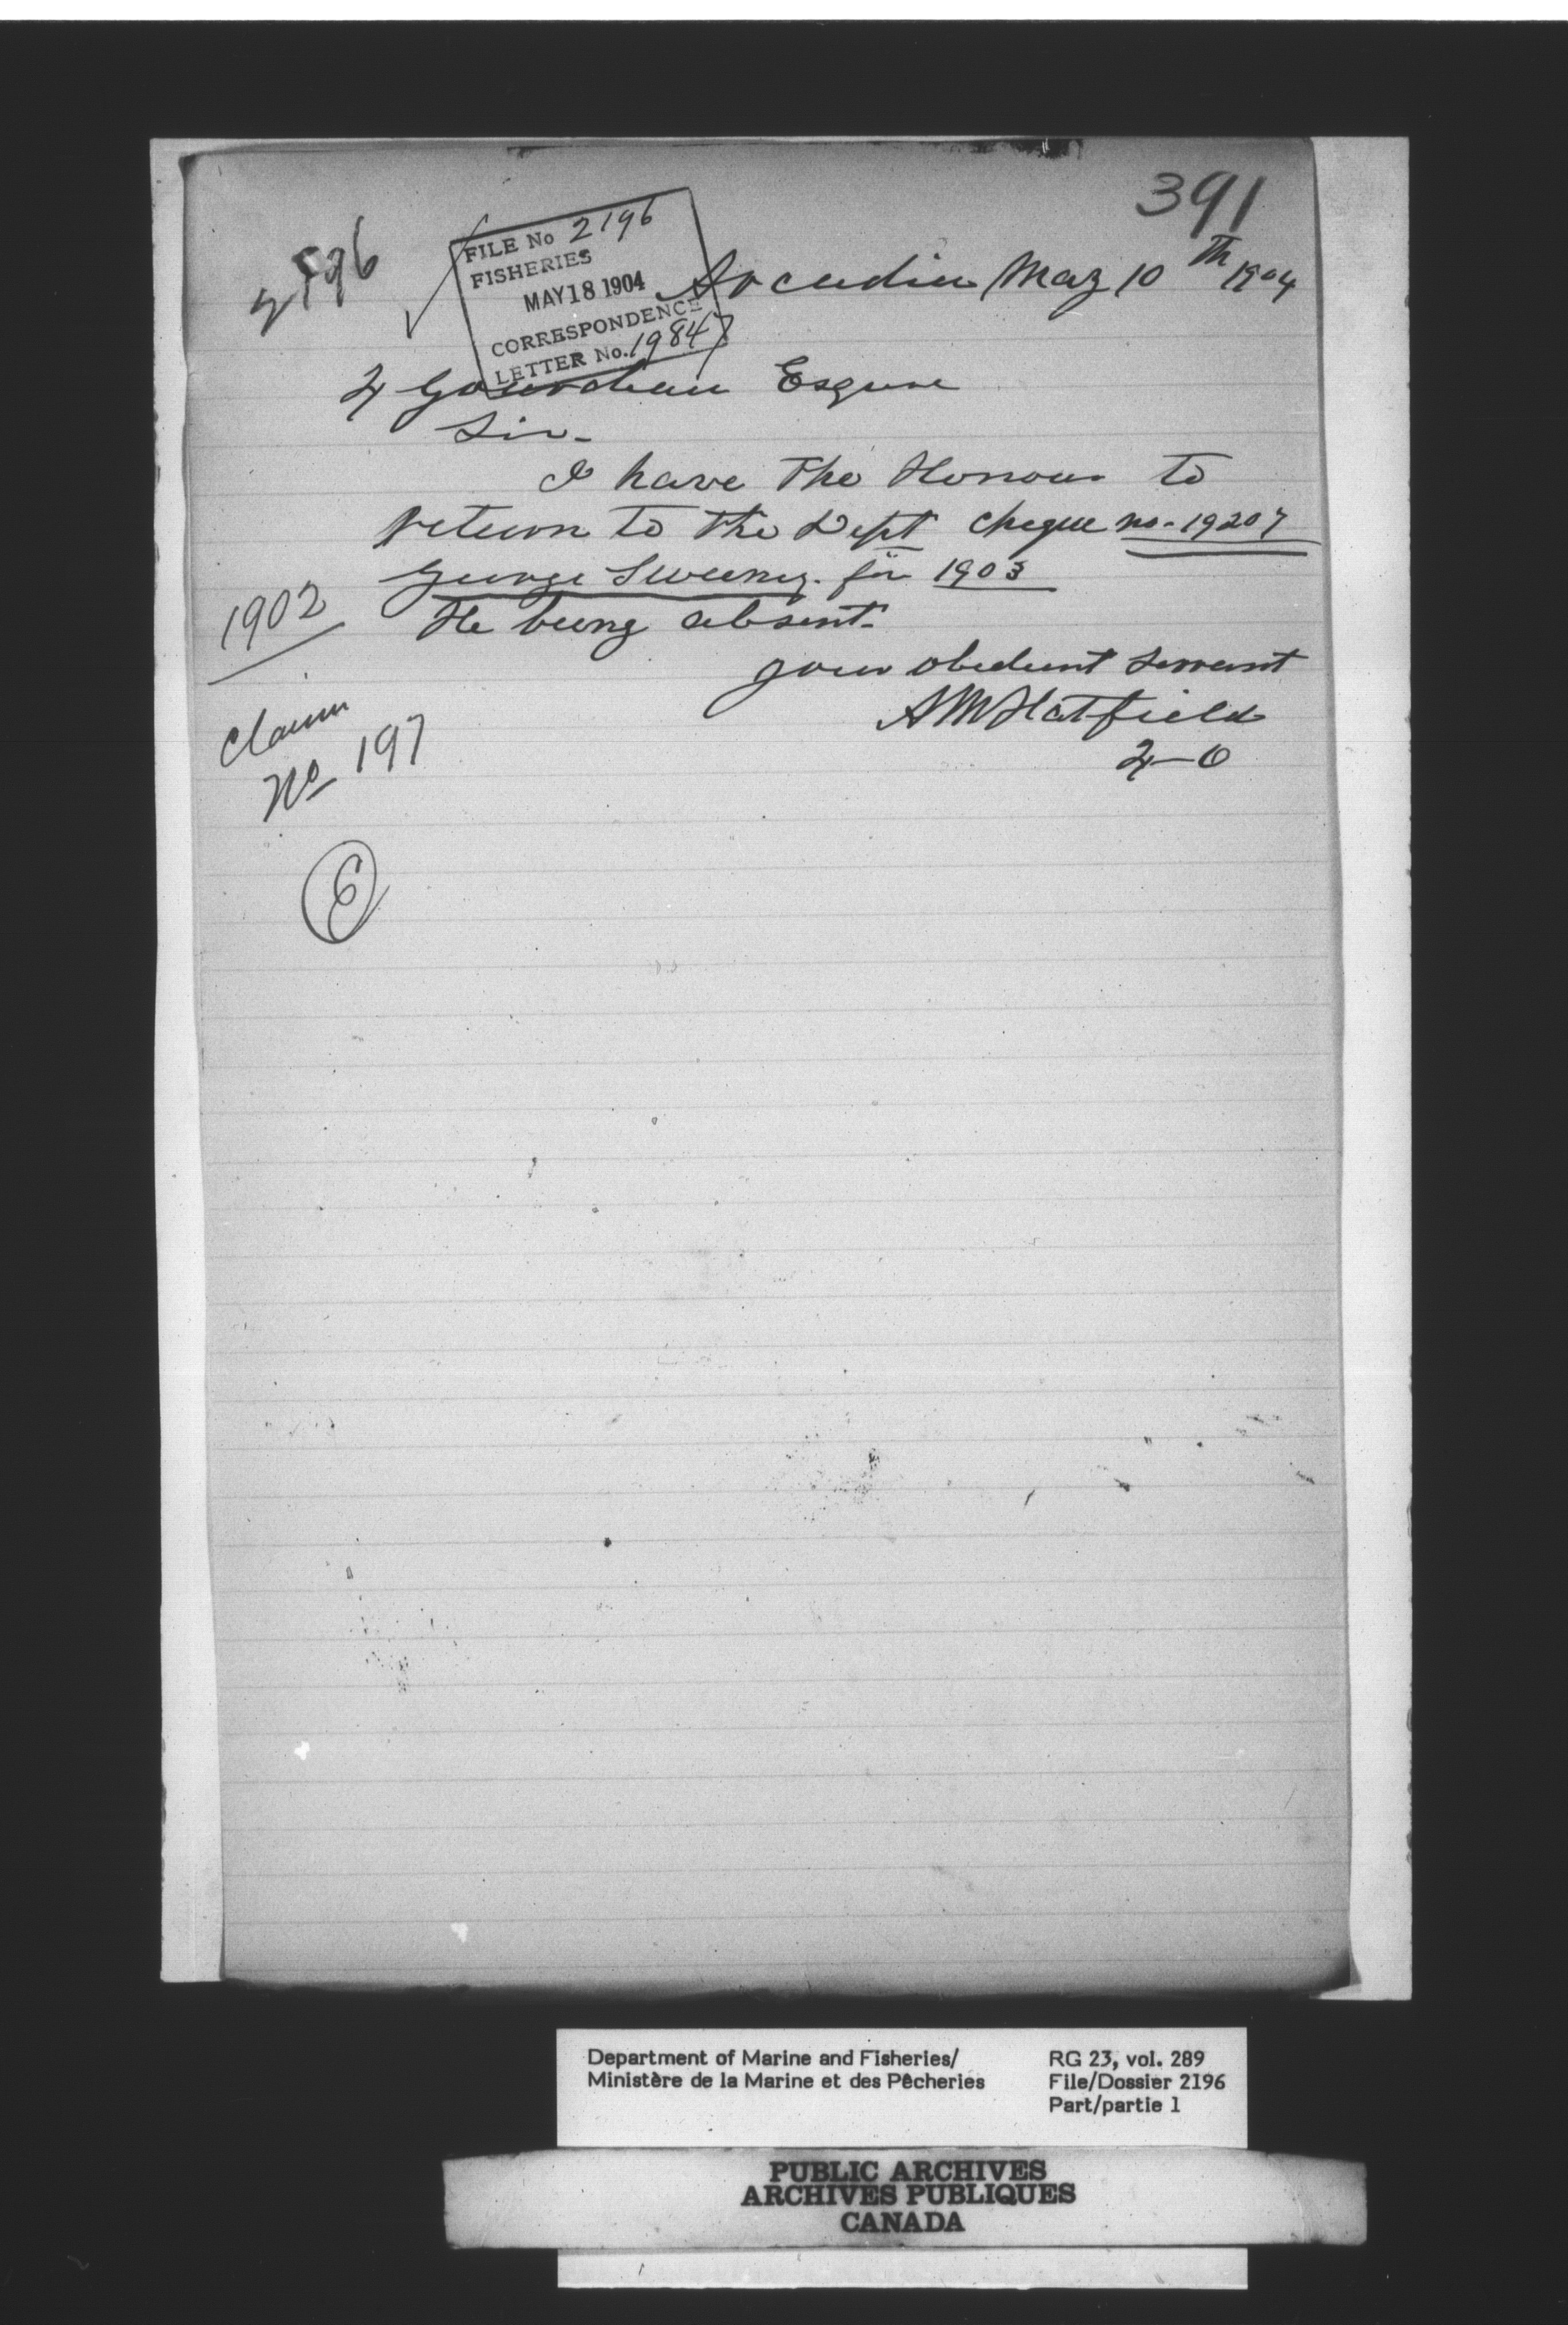 391
2196
FILE No 2196
FISHERIES
MAY 18 1904
CORRESPONDENCE
LETTER No. 19847
Arcadia May 10th 1904
F Gourdeau Esquire
Sir-
I have The Honour to
return to The Dept cheque no- 19207
George Sweeney. for 1903
He being absent.
your obedient Servant
A M Hatfield
F-O
1902
Claim
No 197
E
Department of Marine and Fisheries/
Ministère de la Marine et des Pêcheries
RG 23, vol. 289
File/Dossier 2196
Part/partie 1
PUBLIC ARCHIVES
ARCHIVES PUBLIQUES
CANADA